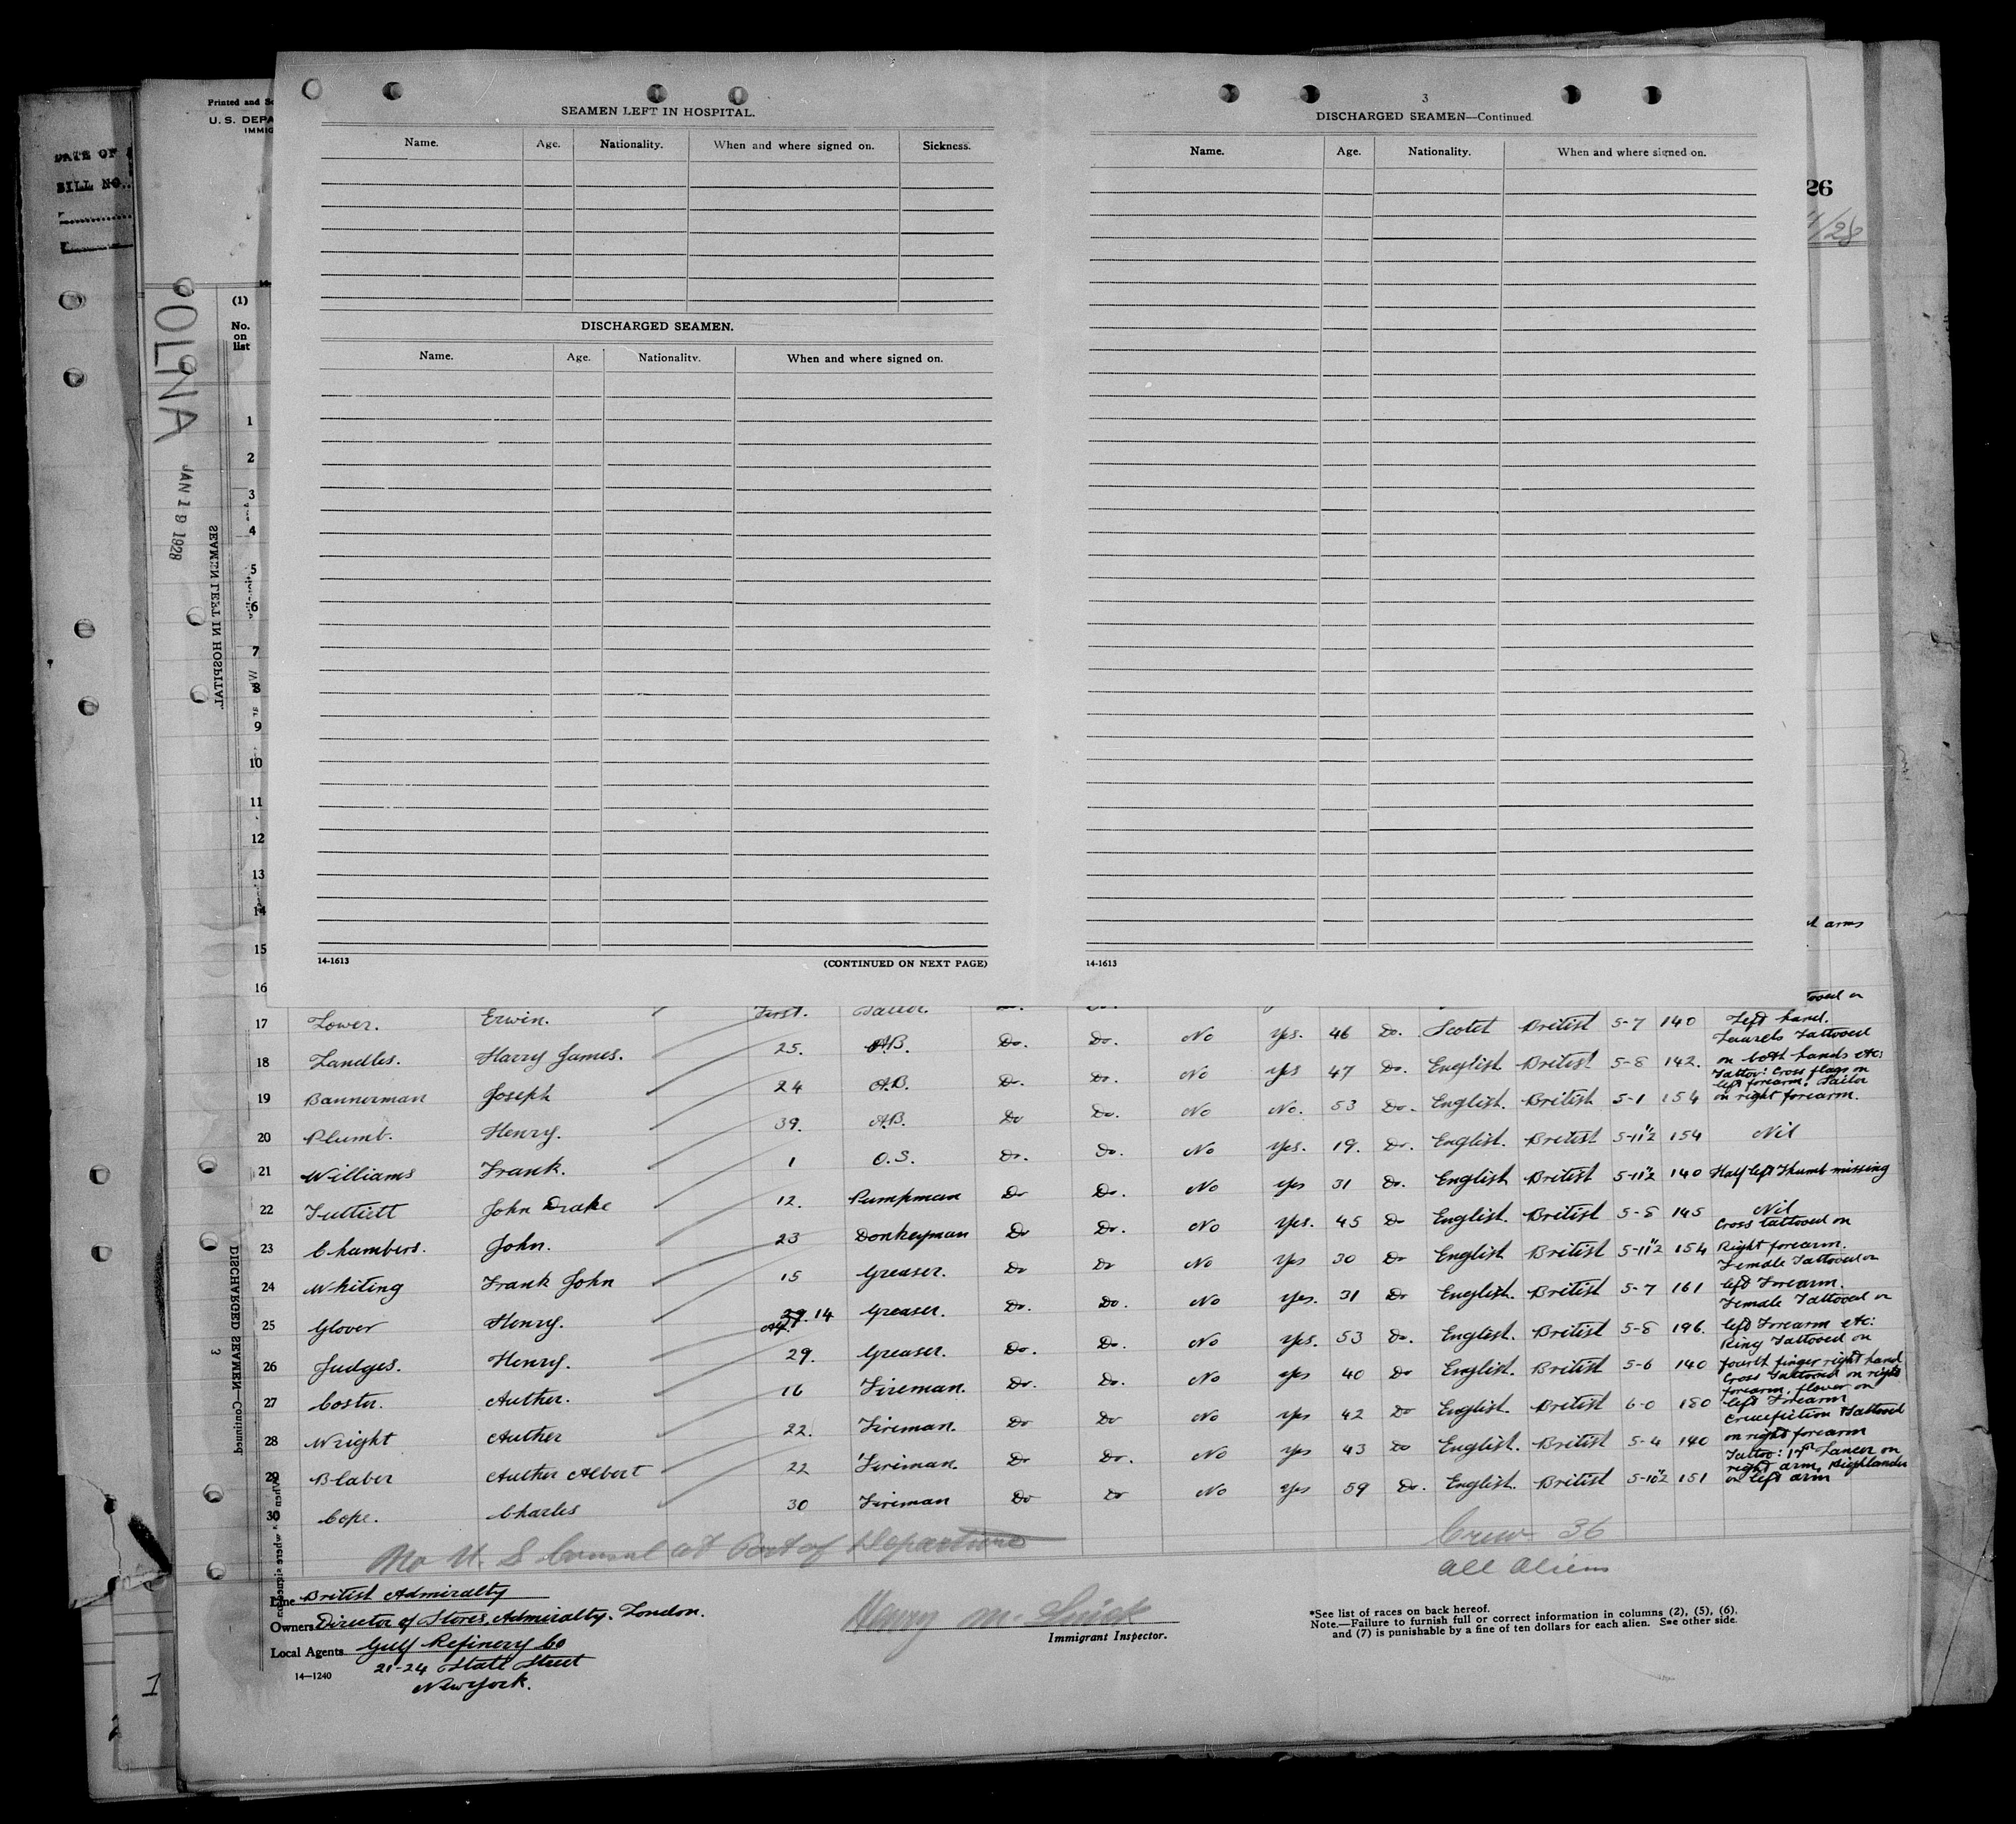 Printed and
U. S. DEPA
IMMIG
DATE OF
BILL NO.
OLNA
JAN 19 1928
SEAMEN LEFT IN HOSPITAL
26
/28
SEAMEN LEFT IN HOSPITAL.
Name. Age. Nationality. When and where signed on. Sickness.
DISCHARGED SEAMEN.
Name. Age. Nationality. When and where signed on.
14-1613 (CONTINUED ON NEXT PAGE)
3
DISCHARGED SEAMEN—Continued.
Name. Age. Nationality. When and where signed on.
14-1613
(1)
No.
on
list
1
2
3
4
5
6
7
8
9
10
11
12
13
14
15
16
arms
17 Lower. Erwin. First.
46 Do. Scotch British 5-7 140 Left hand.
18 Landles. Harry James. 25. A.B. Do. Do. No Yes. 47 Do. English British 5-8 142. Laurels Tattooed on both hands etc:
19 Bannerman Joseph 24 A.B. Do. Do. No Yes 53 Do. English. British 5-1 154 Tattoo: Cross flags on left forearm, Sailor on right forearm.
20 Plumb. Henry. 39. A.B. Do Do. No No. 19. Do. English. British 5-11½ 154 Nil
21 Williams Frank. 1 O.S. Do. Do. No Yes. 31 Do. English British 5-11½ 140 Half left Thumb missing
22 Tuttiett John Drake 12. Pumpman Do Do. No Yes 45 Do English. British 5-8 145 Nil
23 Chambers. John. 23 Donkeyman Do Do. No Yes. 30 Do English British 5-11½ 154 Cross tattooed on Right forearm.
24 Whiting Frank John 15 Greaser. Do Do No Yes 31 Do English. British 5-7 161 Female Tattooed on left Forearm.
25 Glover Henry. 14 Greaser. Do. Do. No Yes. 53 Do. English. British 5-8 196. Female Tattooed on left Forearm etc:
26 Judges. Henry. 29. Greaser. Do. Do. No Yes. 40 Do English. British 5-6 140 Ring Tattooed on fourth finger right hand
27 Coster. Auther. 16 Fireman. Do. Do. No Yes 42 Do English. British 6-0 180 Cross Tattooed on right forearm, flower on left Forearm
28 Wright Auther 22. Fireman. Do Do No Yes 43 Do English. British 5-4 140 Crucifiction Tattooed on right forearm
29 Blaber Auther Albert 22 Fireman. Do Do. No Yes 59 Do. English. British 5-10½ 151 Tattoo: 17th Lancer on right arm, Highlander on left arm
30 Cope. Charles 30 Fireman Do Do No Yes
DISCHARGED SEAMEN—Continued.
3
No U. S Consul at Port of Departure
Crew 36
all aliens
Line British Admiralty
Owners Director of Stores, Admiralty. London.
Local Agents Gulf Refinery Co
21-24 State Street
New York.
14—1240
Harry M.
Immigrant Inspector.
*See list of races on back hereof.
Note.—Failure to furnish full or correct information in columns (2), (5), (6),
and (7) is punishable by a fine of ten dollars for each alien. See other side.
1